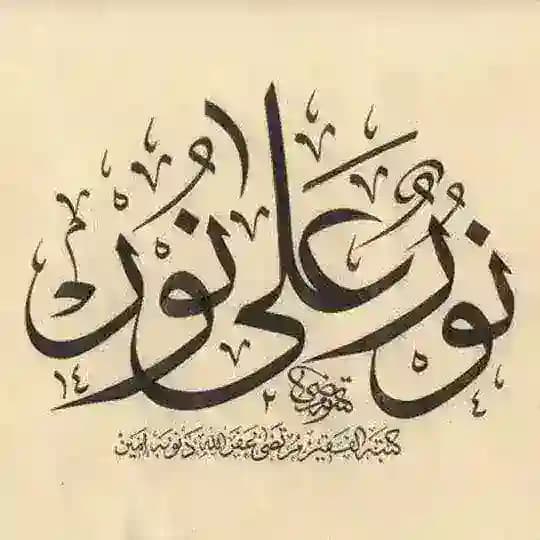 نُورٌ عَلَى نُورٍ
١٤٢٤
كتبه الفقير مرتضى غفر الله ذنوبه امين